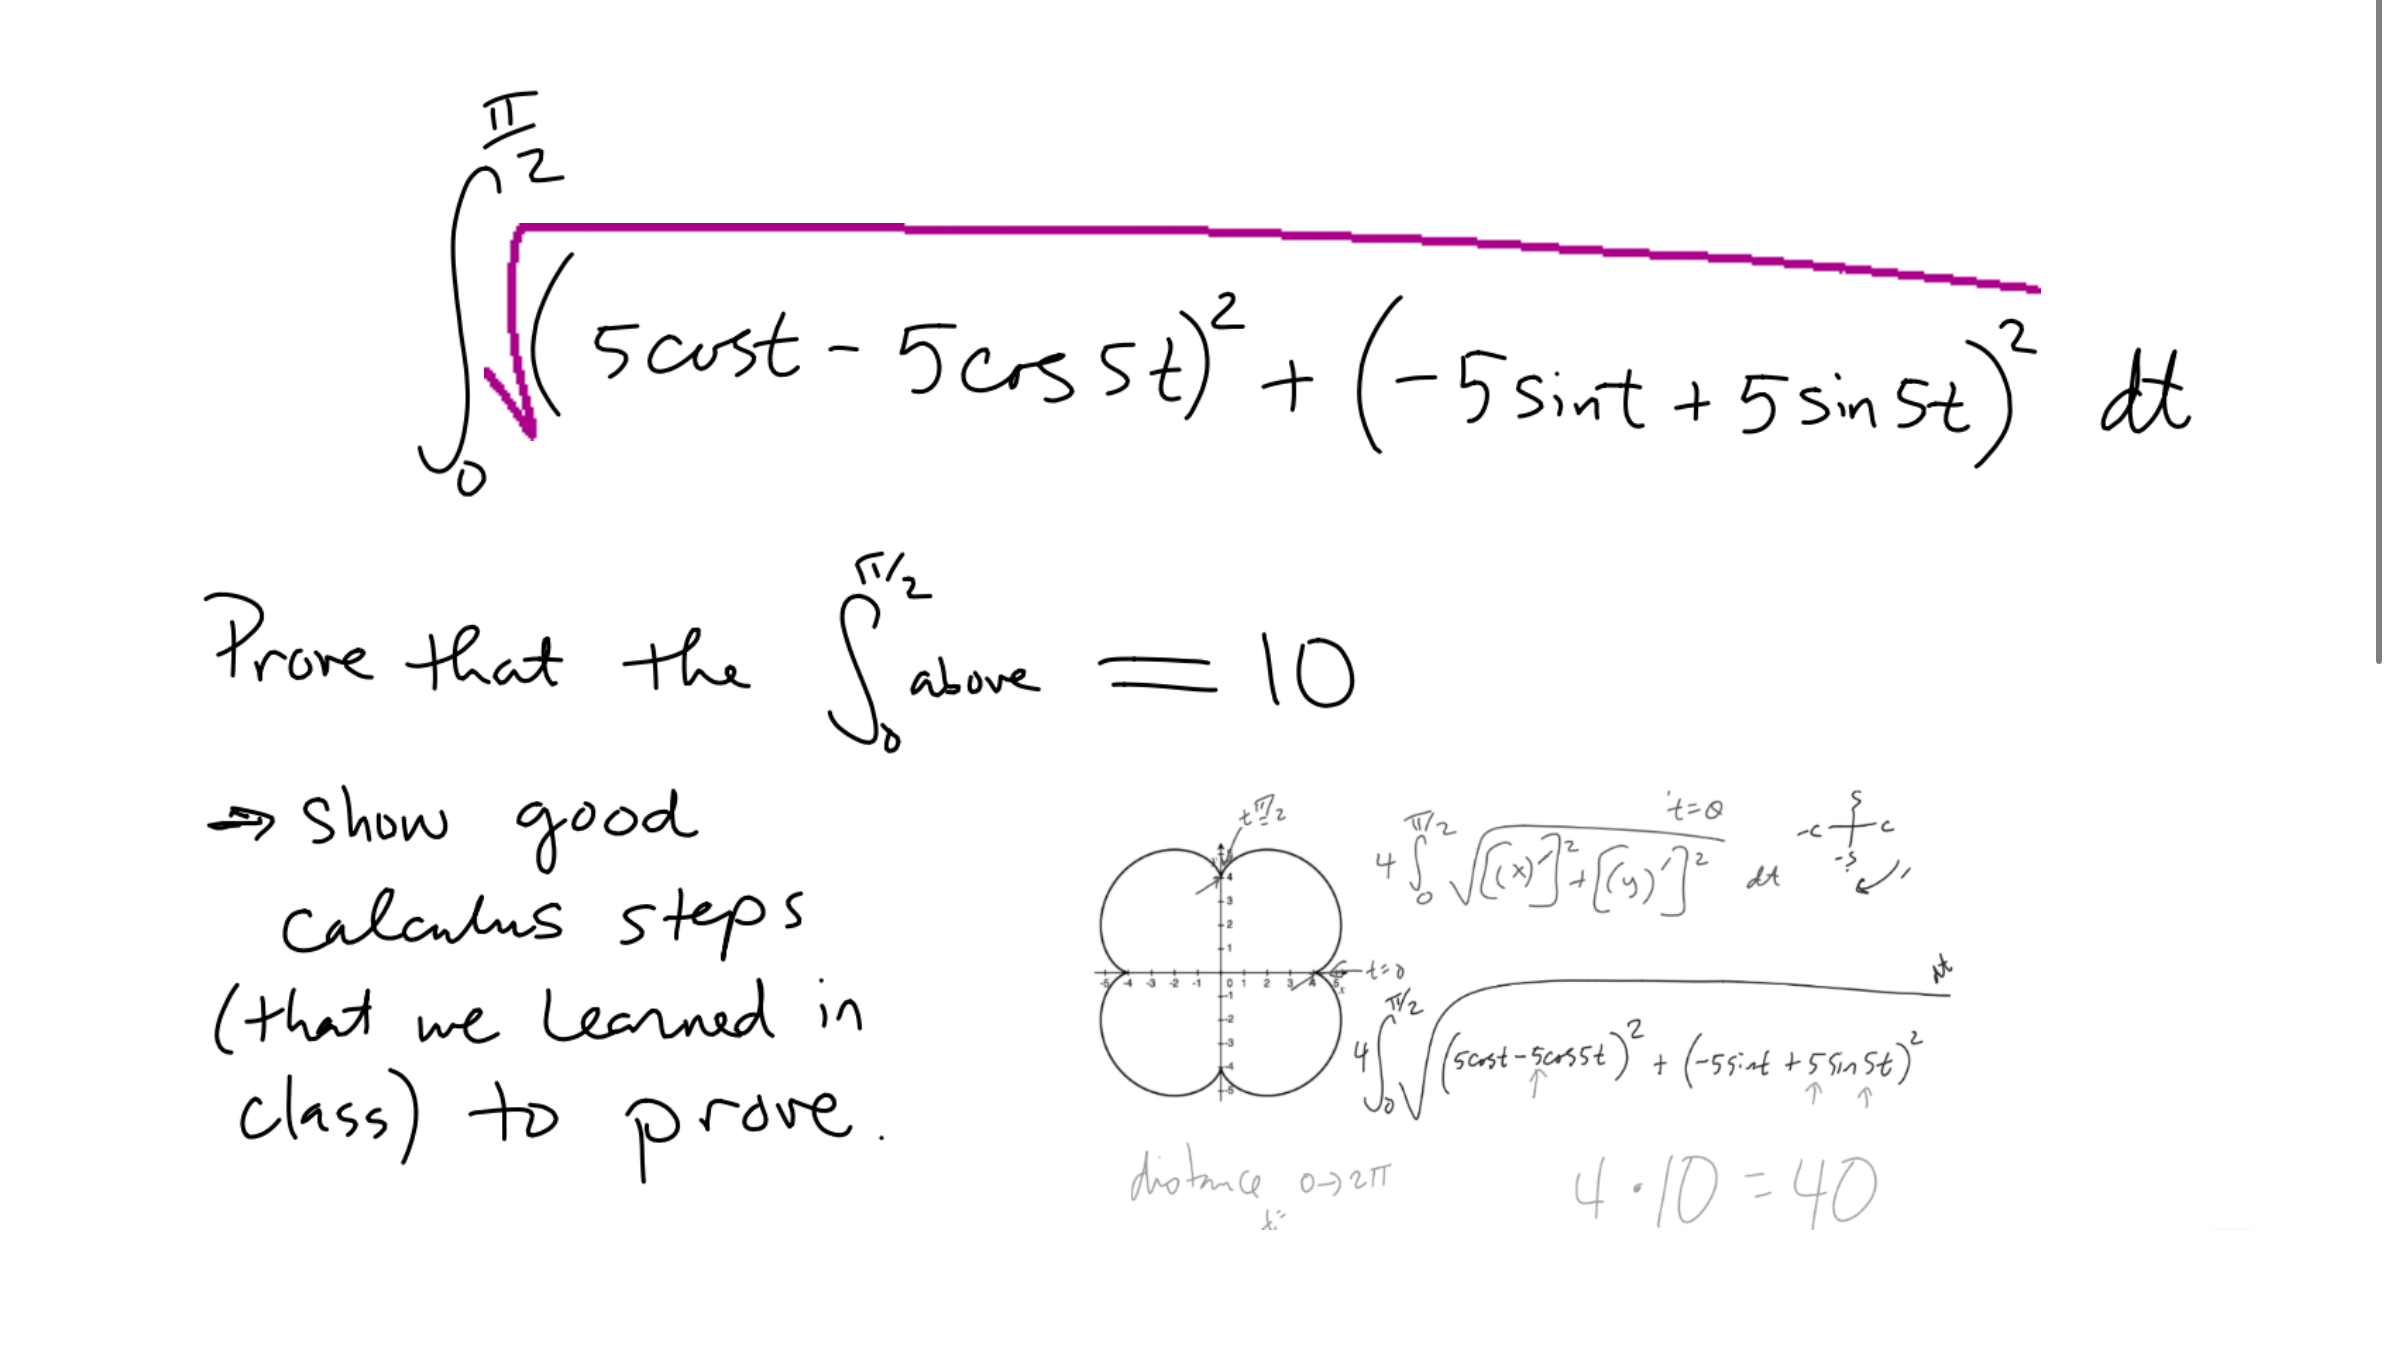 ∫₀^(π/2) √((5cost - 5cos5t)² + (-5sint + 5sin5t)²) dt
Prove that the ∫₀^(π/2) above = 10
→ show good
calculus steps
(that we learned in
class) to prove.
t=π/2
5
4
3
2
1
-5 -4 -3 -2 -1 0 1 2 3 4 5 x
t=0
-1
-2
-3
-4
-5
t=0
4 ∫₀^(π/2) √([(x)']² + [(y)']²) dt
s
-c c
-s
4 ∫₀^(π/2) √((5cost - 5cos5t)² + (-5sint + 5sin5t)²) dt
distance 0→2π
t=
4 · 10 = 40